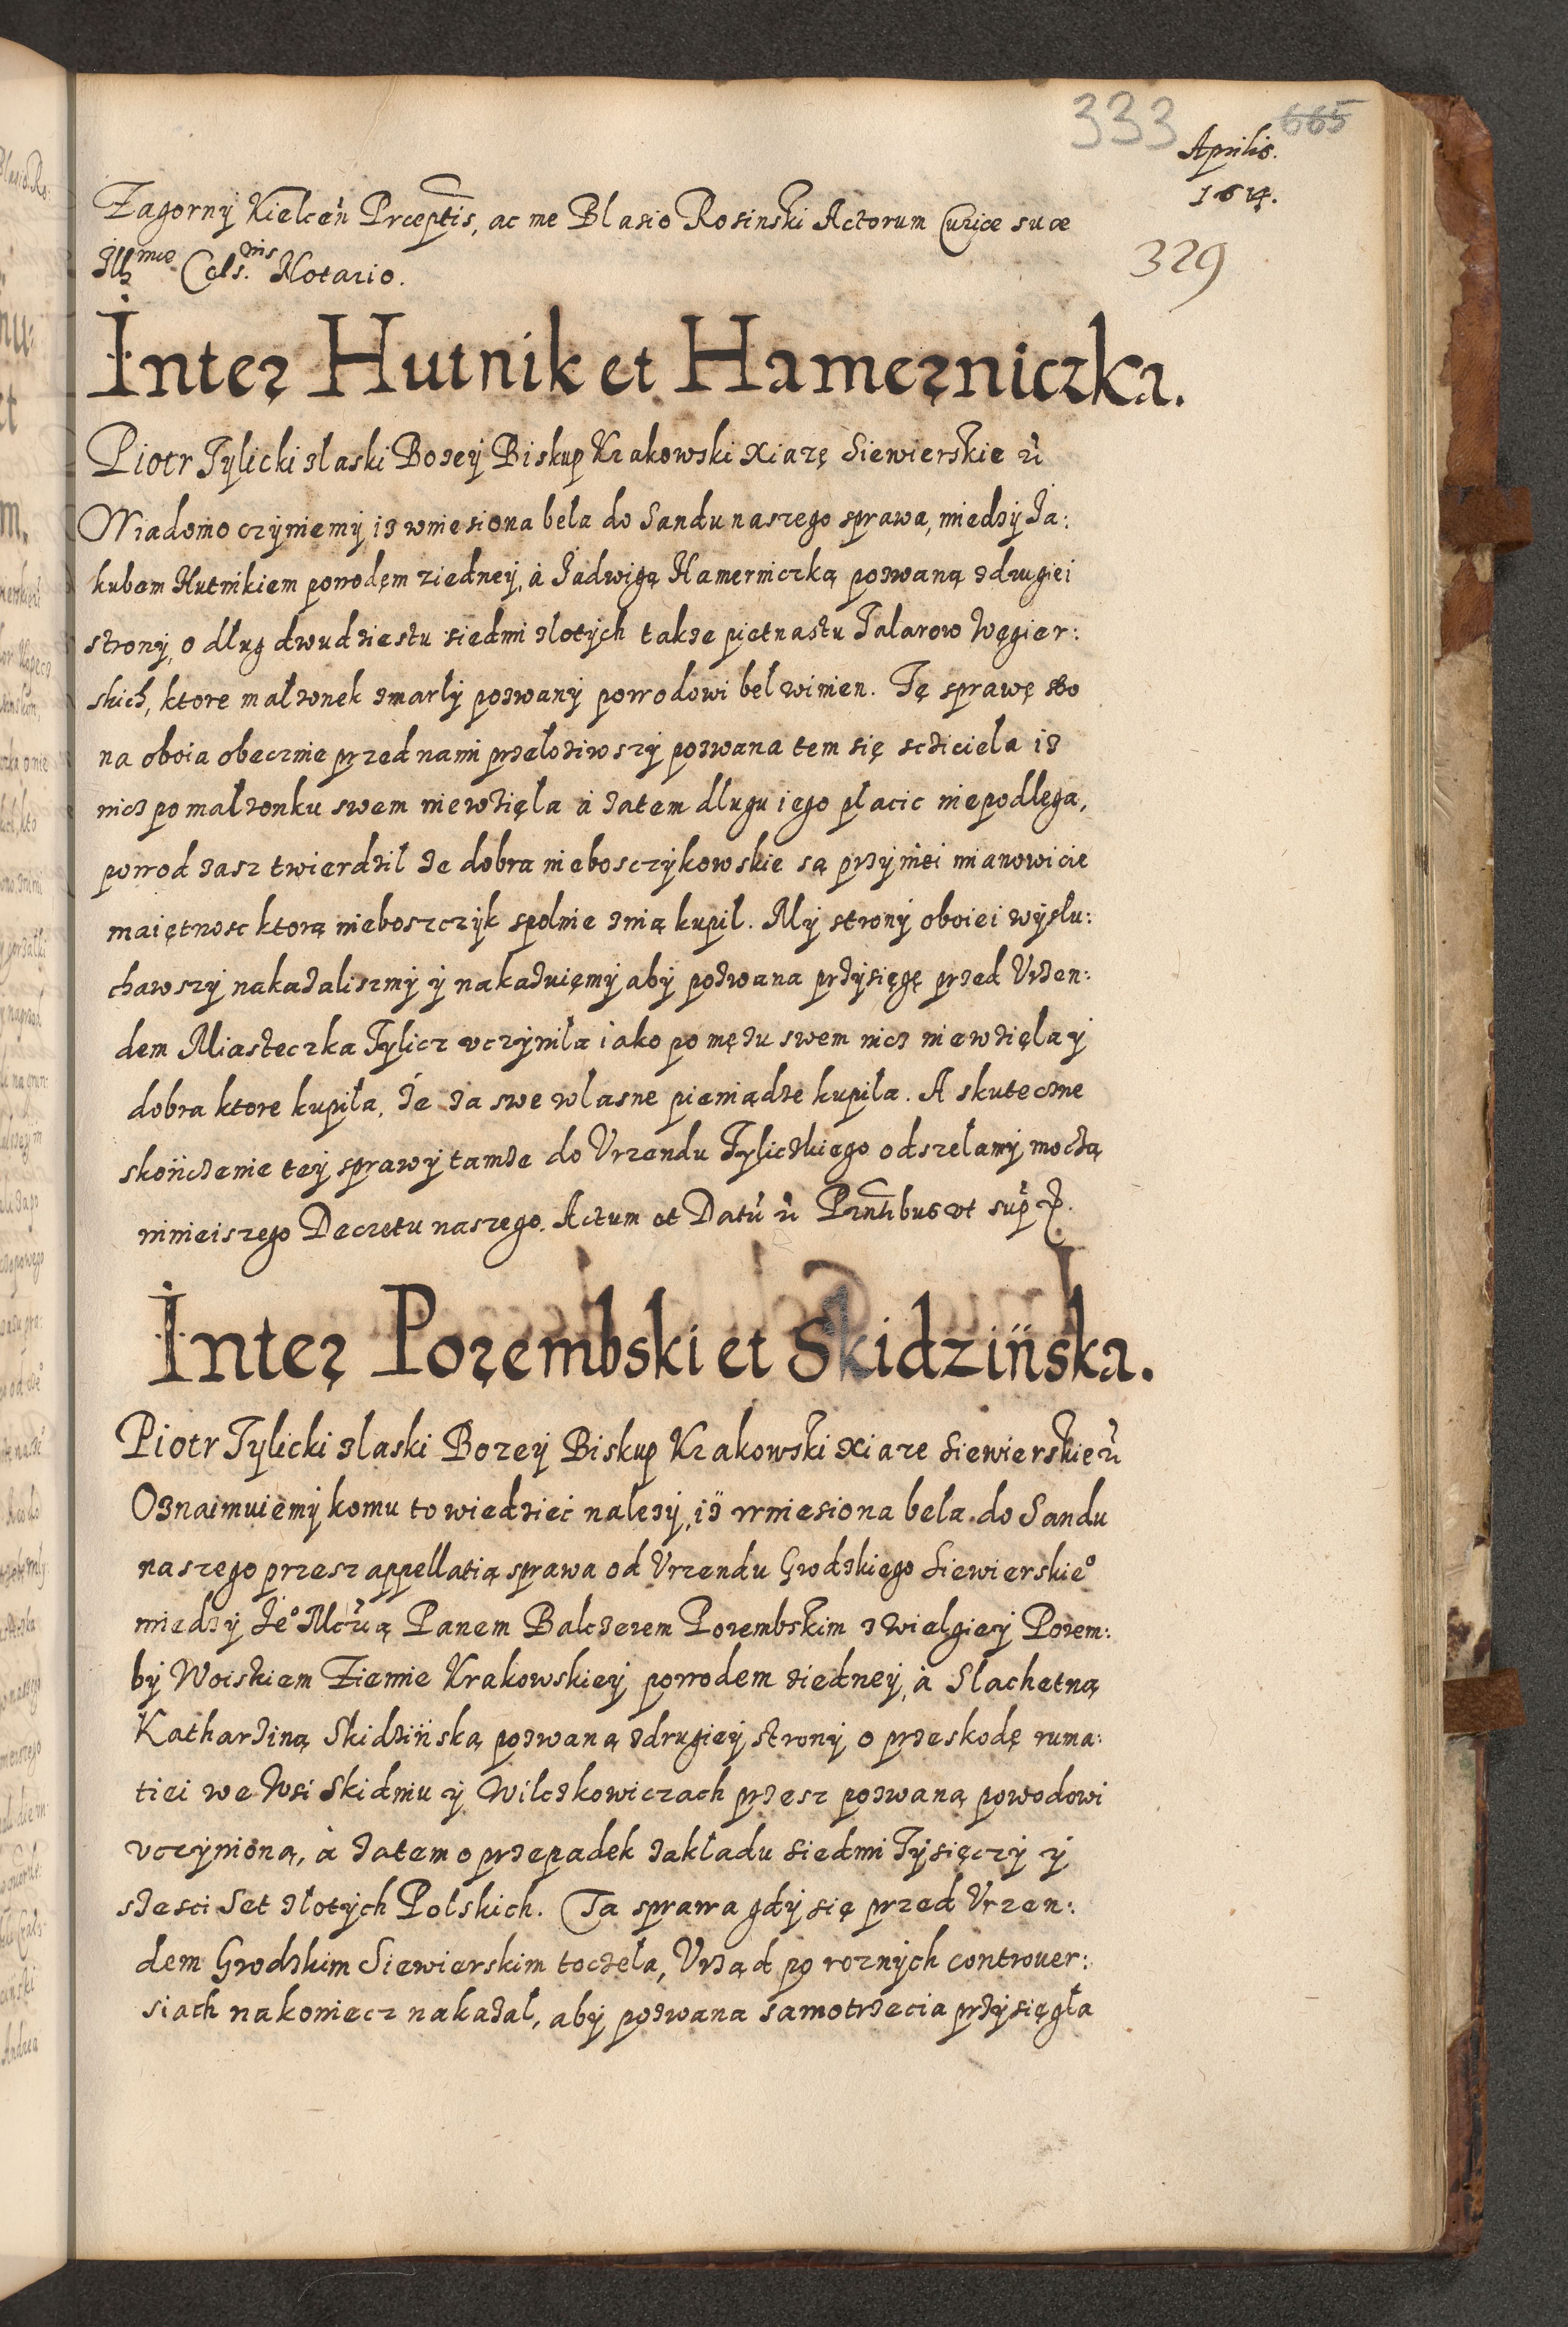 333 665
Aprilis.
1614.
329
Zagorny Kielceñ Prceptis, ac me Blasio Rosinski Actorum Curiæ suæ
Illmæ Cels.nis Notario.
Inter Hutnik et Hamerniczka.
Piotr Tylicki z laski Bozey Biskup Krakowski Xiazę Siewierskie
Wiadomo czyniemy iz wniesiona bela do Sandu naszego sprawa, miedzy Ja:
kubem Hutnikiem powodęm z iedney, a Jadwigą Hamerniczką pozwaną z drugiei
strony, o dlug dwudziestu siedmi zlotych takze pietnastu Talarow Węgier:
skich, ktore malzonek zmarly pozwany powodowi bel winien. Tę sprawę
na oboia obecznie przed nami przeloziwszy pozwana tem się scziciela iz
nicz po malzonku swem niewzięla a zatem dlugu iego placic niepodlęga,
powod zasz twierdzil ze dobra nieboszczykowskie są przy niei mianowicie
maiętnosc ktorą nieboszczyk spolnie znią kupil. My strony oboiei wyslu:
chawszy nakazaliszmy y nakazuięmy aby pozwana przysięgę przed Vrzen:
dem Miasteczka Tylicz vczynila iako po męzu swem nicz niewzięla y
dobra ktore kupila, ze za swe wlasne pieniądze kupila. A skuteczne
skończenie tey sprawy tamze do Vrzendu Tyliczkiego odszelamy moczą
ninieiszego Decretu naszego. Actum et Datũ Pntibus vt sup.
Inter Porembski et Skidzińska.
Piotr Tylicki z laski Bozey Biskup Krakowski Xiaze Siewierskie
Oznaimuiemy komu to wiedziec nalezy, iz wniesiona bela do Sandu
naszego przesz appellatią sprawa od Vrzendu Grodzkiego Siewierskieº
miedzy Jeº Mcią Panem Balczerem Porembskim z Wielgiey Porem:
by Woiskiem Ziemie Krakowskiey powodem z iedney, a Slachetną
Katharziną Skidzińską pozwaną z drugiey strony o przeskodę ruma:
tiei we Wsi Skidniu y Wilczkowiczach przesz pozwaną powodowi
vczynioną, a zatem o przepadek zakladu siedmi Tysięczy y
szesci Set zlotych Polskich. Ta sprawa gdy się przed Vrzen:
dem Grodzkim Siewierskim toczela, Vrząd po roznych controuer:
siach nakoniecz nakazal, aby pozwana samotrzecia przysięgla